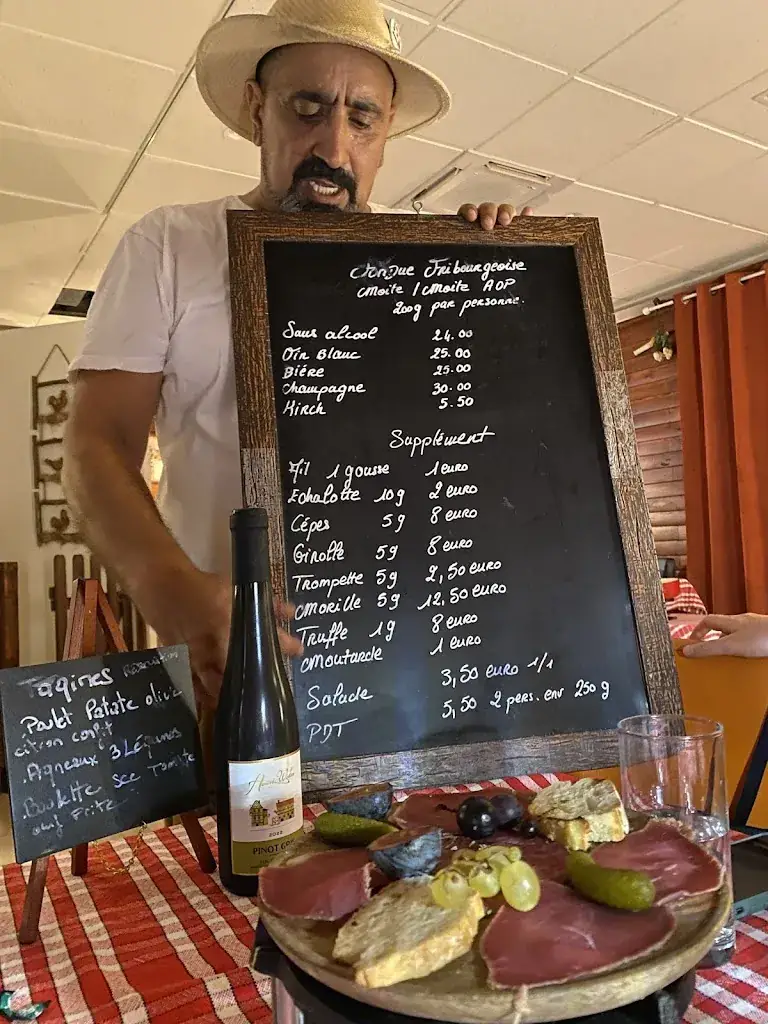 Fondue Fribourgeoise
Moite / Moite AOP
200g par personne.
Sans alcool 24.00
Vin Blanc 25.00
Bière 25.00
Champagne 30.00
Kirch 5.50
Supplément
Ail 1 gousse 1 euro
Echalotte 10g 2 euro
Cépes 5g 8 euro
Girolle 5g 8 euro
Trompette 5g 2,50 euro
Morille 5g 12,50 euro
Truffe 1g 8 euro
Moutarde 1 euro
Salade 3,50 euro 1/1
PDT 5,50 2 pers. env 250 g
Tagines Réservation
.Poulet Patate olive
citron confit
.Agneaux 3 Légumes
.Boulette sce Tomate
œuf Frite
2022
PINOT